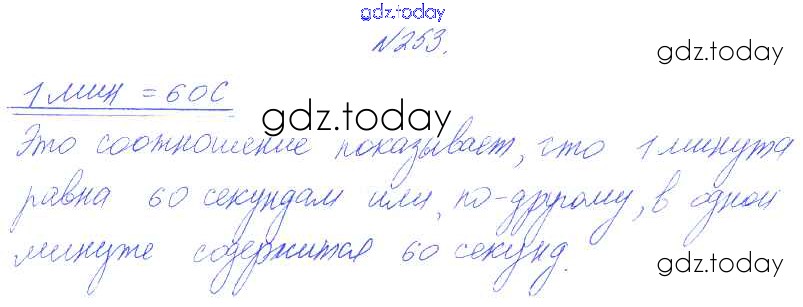 gdz.today
№253.
gdz.today
1 мин = 60 С
gdz.today
Это соотношение показывает, что 1 минута
равна 60 секундам или, по-другому, в одной
минуте содержится 60 секунд.
gdz.today
gdz.today